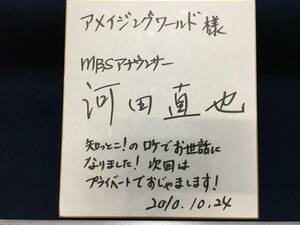 アメイジングワールド様
MBSアナウンサー
河田直也
知っとこ!のロケでお世話に
なりました!次回は
プライベートでおじゃまします!
2010.10.24